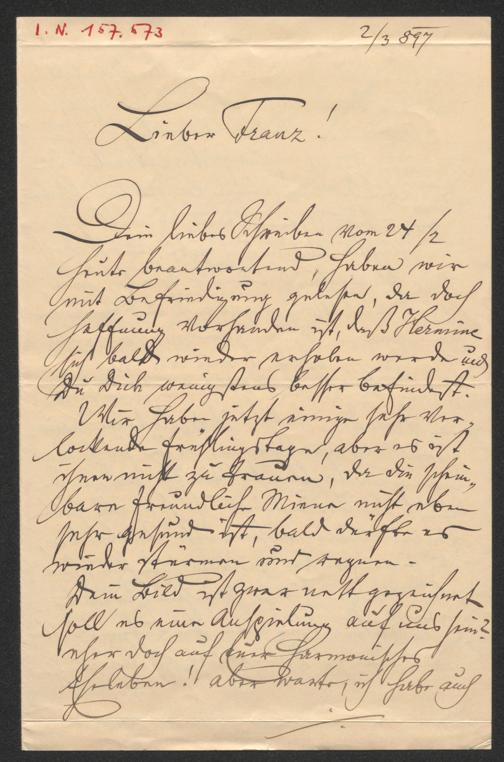 I. N. 157.573
2/3 897
Lieber Franz!
Dein liebes Schreiben vom 24/2
heute beantwortend, haben wir
mit Befriedigung gelesen, da doch
Hoffnung vorhanden ist, daß Hermine
sich bald wieder erholen werde und
Du Dich wenigstens besser befindest.
Wir haben jetzt einige sehr ver-
lockende Frühlingstage, aber es ist
ihnen nicht zu trauen, da die schein-
bare freundliche Miene nicht eben
sehr gesund ist, bald dürfte es
wieder stürmen und regnen.
Dein Bild ist zwar nett gezeichnet
soll es eine Anspielung auf uns sein?
eher doch auf euer harmonisches
Eheleben! aber warte, ich habe auch